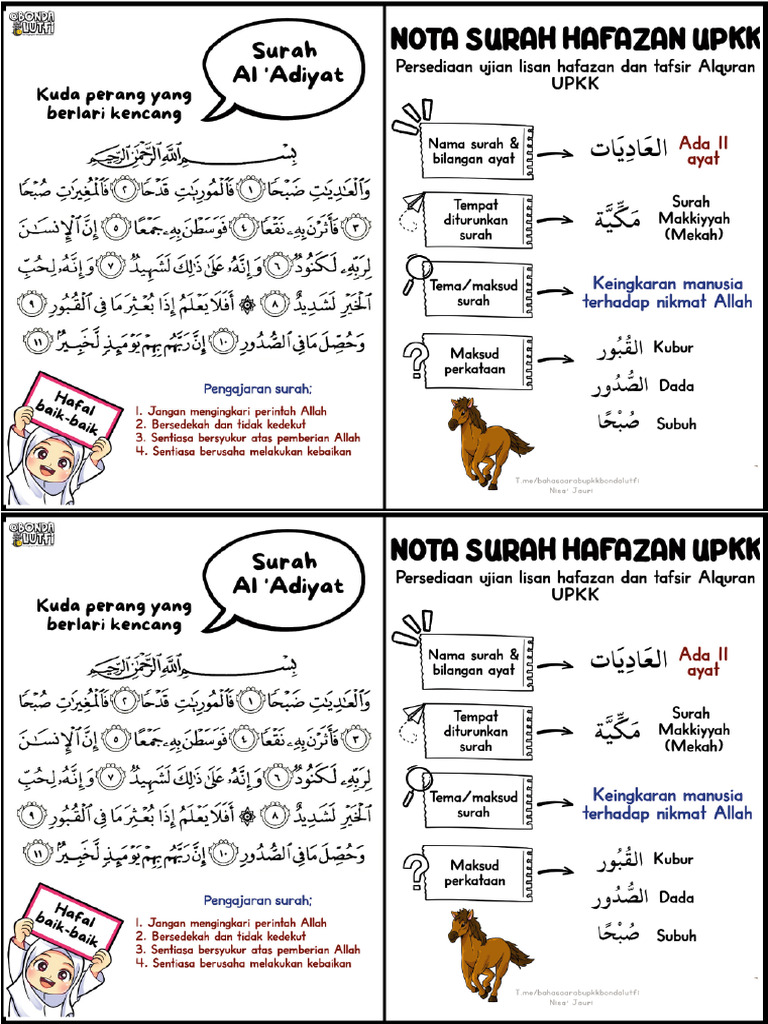 @BONDA
LUTFI
Surah
Al 'Adiyat
Kuda perang yang
berlari kencang
بِسْمِ اللَّهِ الرَّحْمَٰنِ الرَّحِيمِ
وَٱلْعَٰدِيَٰتِ ضَبْحًا ١ فَٱلْمُورِيَٰتِ قَدْحًا ٢ فَٱلْمُغِيرَٰتِ صُبْحًا
٣ فَأَثَرْنَ بِهِۦ نَقْعًا ٤ فَوَسَطْنَ بِهِۦ جَمْعًا ٥ إِنَّ ٱلْإِنسَٰنَ
لِرَبِّهِۦ لَكَنُودٌ ٦ وَإِنَّهُۥ عَلَىٰ ذَٰلِكَ لَشَهِيدٌ ٧ وَإِنَّهُۥ لِحُبِّ
ٱلْخَيْرِ لَشَدِيدٌ ٨ ۞ أَفَلَا يَعْلَمُ إِذَا بُعْثِرَ مَا فِى ٱلْقُبُورِ ٩
وَحُصِّلَ مَا فِى ٱلصُّدُورِ ١٠ إِنَّ رَبَّهُم بِهِمْ يَوْمَئِذٍ لَّخَبِيرٌۢ ١١
Hafal
baik-baik
Pengajaran surah;
1. Jangan mengingkari perintah Allah
2. Bersedekah dan tidak kedekut
3. Sentiasa bersyukur atas pemberian Allah
4. Sentiasa berusaha melakukan kebaikan
NOTA SURAH HAFAZAN UPKK
Persediaan ujian lisan hafazan dan tafsir Alquran
UPKK
Nama surah &
bilangan ayat
العَادِيَات
Ada 11
ayat
Tempat
diturunkan
surah
مَكِّيَّة
Surah
Makkiyyah
(Mekah)
Tema/maksud
surah
Keingkaran manusia
terhadap nikmat Allah
Maksud
perkataan
القُبُور Kubur
الصُّدُور Dada
صُبْحًا Subuh
T.me/bahasaarabupkkbondalutfi
Nisa' Jauri
@BONDA
LUTFI
Surah
Al 'Adiyat
Kuda perang yang
berlari kencang
بِسْمِ اللَّهِ الرَّحْمَٰنِ الرَّحِيمِ
وَٱلْعَٰدِيَٰتِ ضَبْحًا ١ فَٱلْمُورِيَٰتِ قَدْحًا ٢ فَٱلْمُغِيرَٰتِ صُبْحًا
٣ فَأَثَرْنَ بِهِۦ نَقْعًا ٤ فَوَسَطْنَ بِهِۦ جَمْعًا ٥ إِنَّ ٱلْإِنسَٰنَ
لِرَبِّهِۦ لَكَنُودٌ ٦ وَإِنَّهُۥ عَلَىٰ ذَٰلِكَ لَشَهِيدٌ ٧ وَإِنَّهُۥ لِحُبِّ
ٱلْخَيْرِ لَشَدِيدٌ ٨ ۞ أَفَلَا يَعْلَمُ إِذَا بُعْثِرَ مَا فِى ٱلْقُبُورِ ٩
وَحُصِّلَ مَا فِى ٱلصُّدُورِ ١٠ إِنَّ رَبَّهُم بِهِمْ يَوْمَئِذٍ لَّخَبِيرٌۢ ١١
Hafal
baik-baik
Pengajaran surah;
1. Jangan mengingkari perintah Allah
2. Bersedekah dan tidak kedekut
3. Sentiasa bersyukur atas pemberian Allah
4. Sentiasa berusaha melakukan kebaikan
NOTA SURAH HAFAZAN UPKK
Persediaan ujian lisan hafazan dan tafsir Alquran
UPKK
Nama surah &
bilangan ayat
العَادِيَات
Ada 11
ayat
Tempat
diturunkan
surah
مَكِّيَّة
Surah
Makkiyyah
(Mekah)
Tema/maksud
surah
Keingkaran manusia
terhadap nikmat Allah
Maksud
perkataan
القُبُور Kubur
الصُّدُور Dada
صُبْحًا Subuh
T.me/bahasaarabupkkbondalutfi
Nisa' Jauri